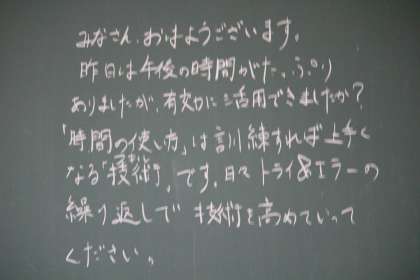 みなさん、おはようございます。
昨日は午後の時間がたっぷり
ありましたが、有効に活用できましたか？
「時間の使い方」は訓練すれば上手く
なる「技術」です。日々トライ&エラーの
繰り返しで技術を高めていって
ください。